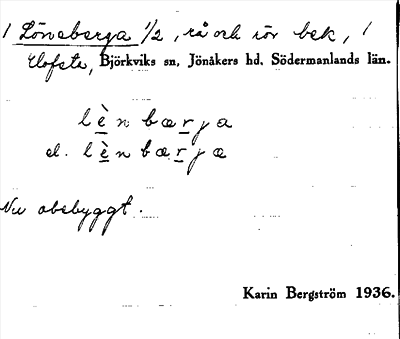 / Löneberga 1/2, rå och rör bek, /
Hofsta, Björkviks sn, Jönåkers hd. Södermanlands län.
lè̱nbæṟja
el. lè̱nbæṟjæ
Nu obebyggt.
Karin Bergström 1936.